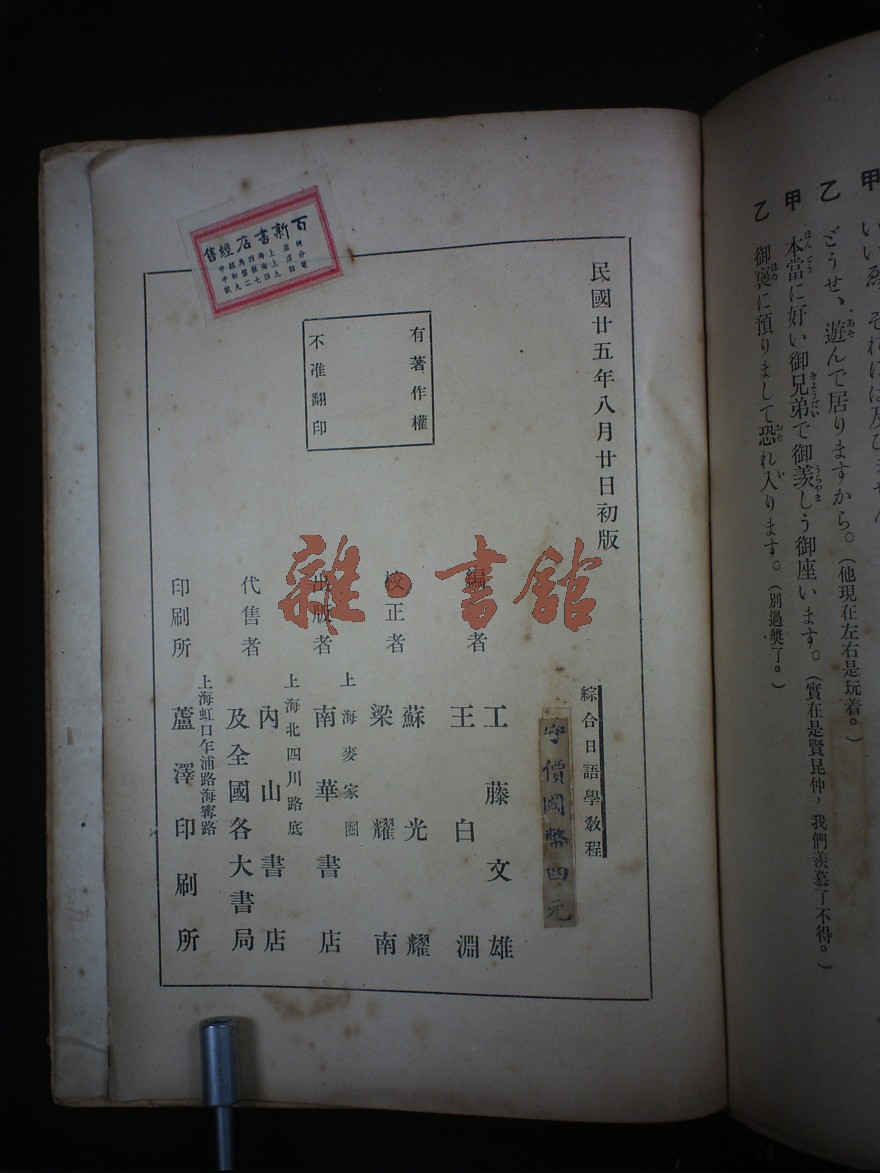 甲 いい
乙 どうせ、遊んで居りますから。（他現在左右是玩着。）
甲 本當に好い御兄弟で御羨しう御座います。（實在是賢昆仲，我們羨慕了不得。）
乙 御褒に預りまして恐れ入ります。（別過獎了。）
百新書店經售
民國廿五年八月廿日初版
有著作權
不准翻印
綜合日語學教程
定價國幣四元
編者
工藤文雄
王白淵
校正者
蘇光耀
梁耀南
出版者
上海麥家圈
南華書店
代售者
上海北四川路底
內山書店
及全國各大書局
印刷所
上海虹口乍浦路海寗路
蘆澤印刷所
雜·書館